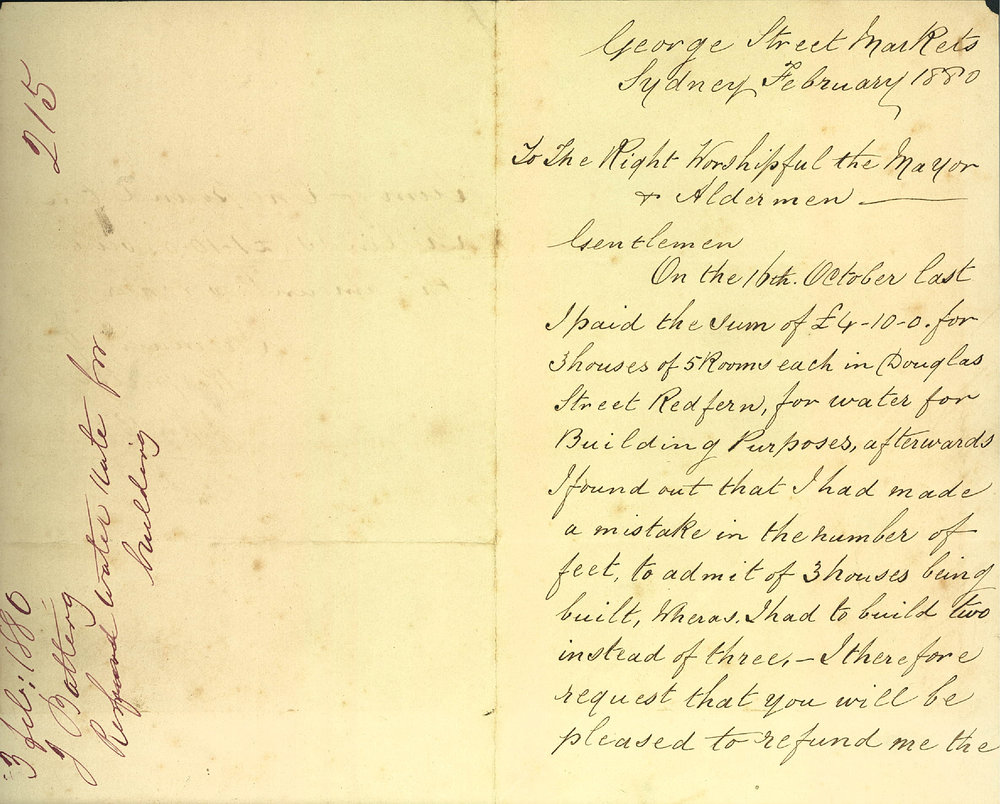 215
3 Feb: 1880
J Battery
Refund water rate for
building
George Street Markets
Sydney February 1880
To The Right Worshipful the Mayor
& Aldermen
Gentlemen
On the 16th. October last
I paid the sum of £4-10-0. for
3 houses of 5 Rooms each in Douglas
Street Redfern, for water for
Building Purposes, afterwards
I found out that I had made
a mistake in the number of
feet, to admit of 3 houses being
built, Wheras. I had to build two
instead of three, - I therefore
request that you will be
pleased to refund me the